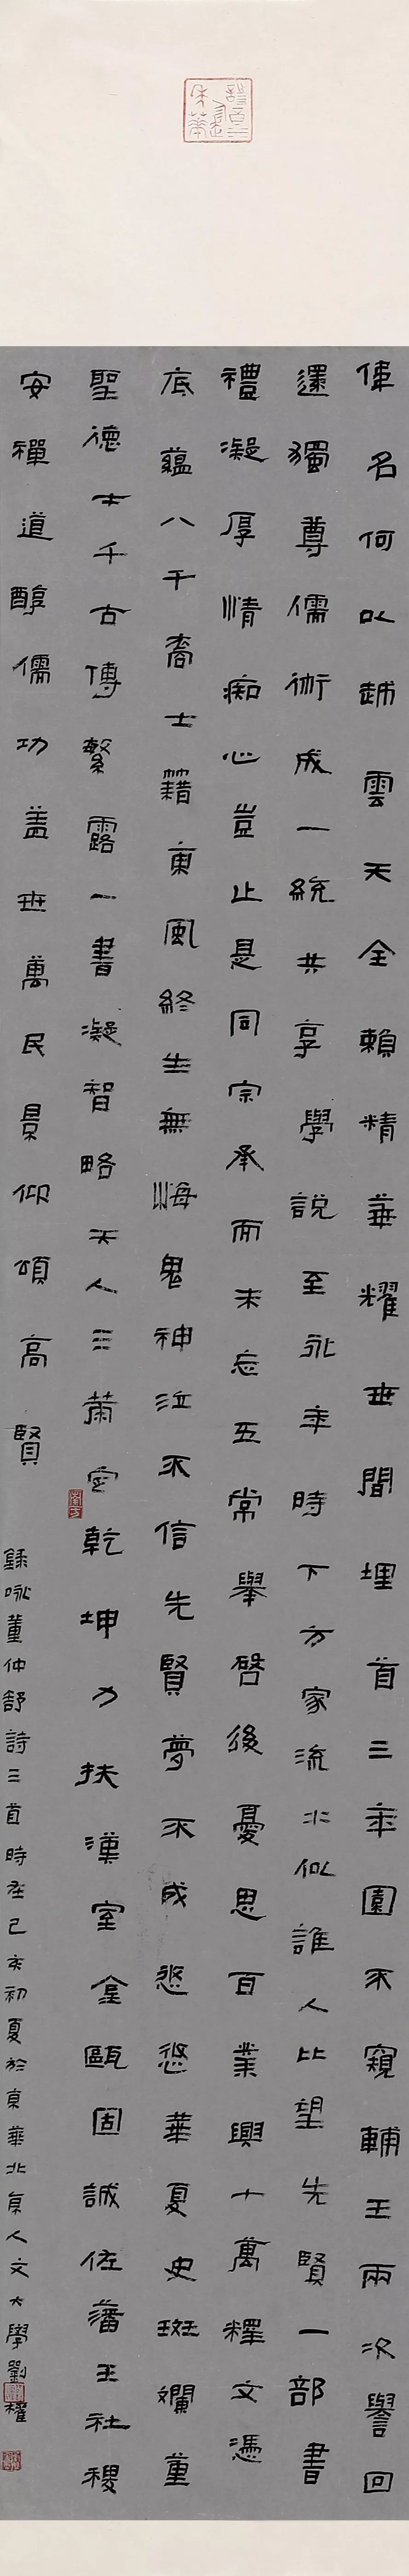 偉名何以越雲天全賴精華耀世間埋首三年園不窺輔王兩次譽回
還獨尊儒術成一統共享學說至永年時下方家流水似誰人比望先賢一部書
禮凝厚情痴心豈止是同宗承而未忘五常舉啓後憂思百業興十萬釋文憑
底蘊八千裔士藉東風終生無悔鬼神泣不信先賢夢不成悠悠華夏史斑斕董
聖德士千古傳繁露一書凝智略天人三策定乾坤力扶漢室金甌固誠佐藩王社稷
安禪道醇儒功盖世萬民景仰頌高賢
錄咏董仲舒詩三首時在己亥初夏於京華北京人文大學劉權